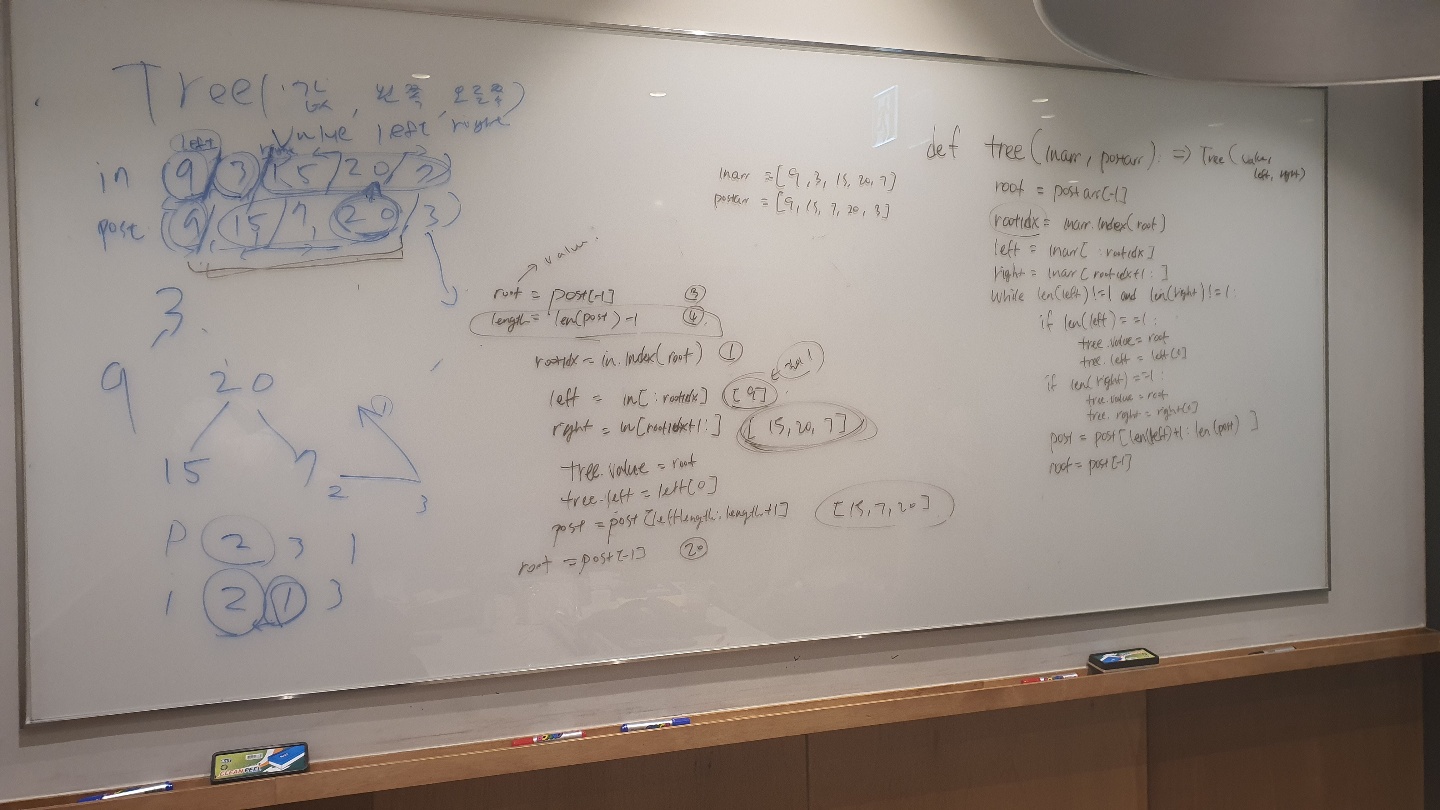 Tree(값, 왼쪽, 오른쪽)
value left right
left
in 9/3/15/20/7
post 9,15/7,20,3)
3.
9 20
15 7
1
2 3
P 2 3 1
i 2 1 3
inarr = [9,3,15,20,7]
postarr = [9,15,7,20,3]
value.
root = post[-1] ③
length = len(post)-1 ④
rootidx = in.index(root) ①
left = in[:rootidx] [9]
right = in[rootidx+1:] [15,20,7]
tree.value = root
tree.left = left[0]
post = post[leftlength:length+1] [15,7,20]
root = post[-1] 20
def tree(inarr, postarr): => Tree(value, left, right)
root = postarr[-1]
rootidx = inarr.index(root)
left = inarr[:rootidx]
right = inarr[rootidx+1:]
while len(left)!=1 and len(right)!=1:
if len(left)==1:
tree.value=root
tree.left=left[0]
if len(right)==1:
tree.value=root
tree.right=right[0]
post=post[len(left)+1:len(post)]
root=post[-1]